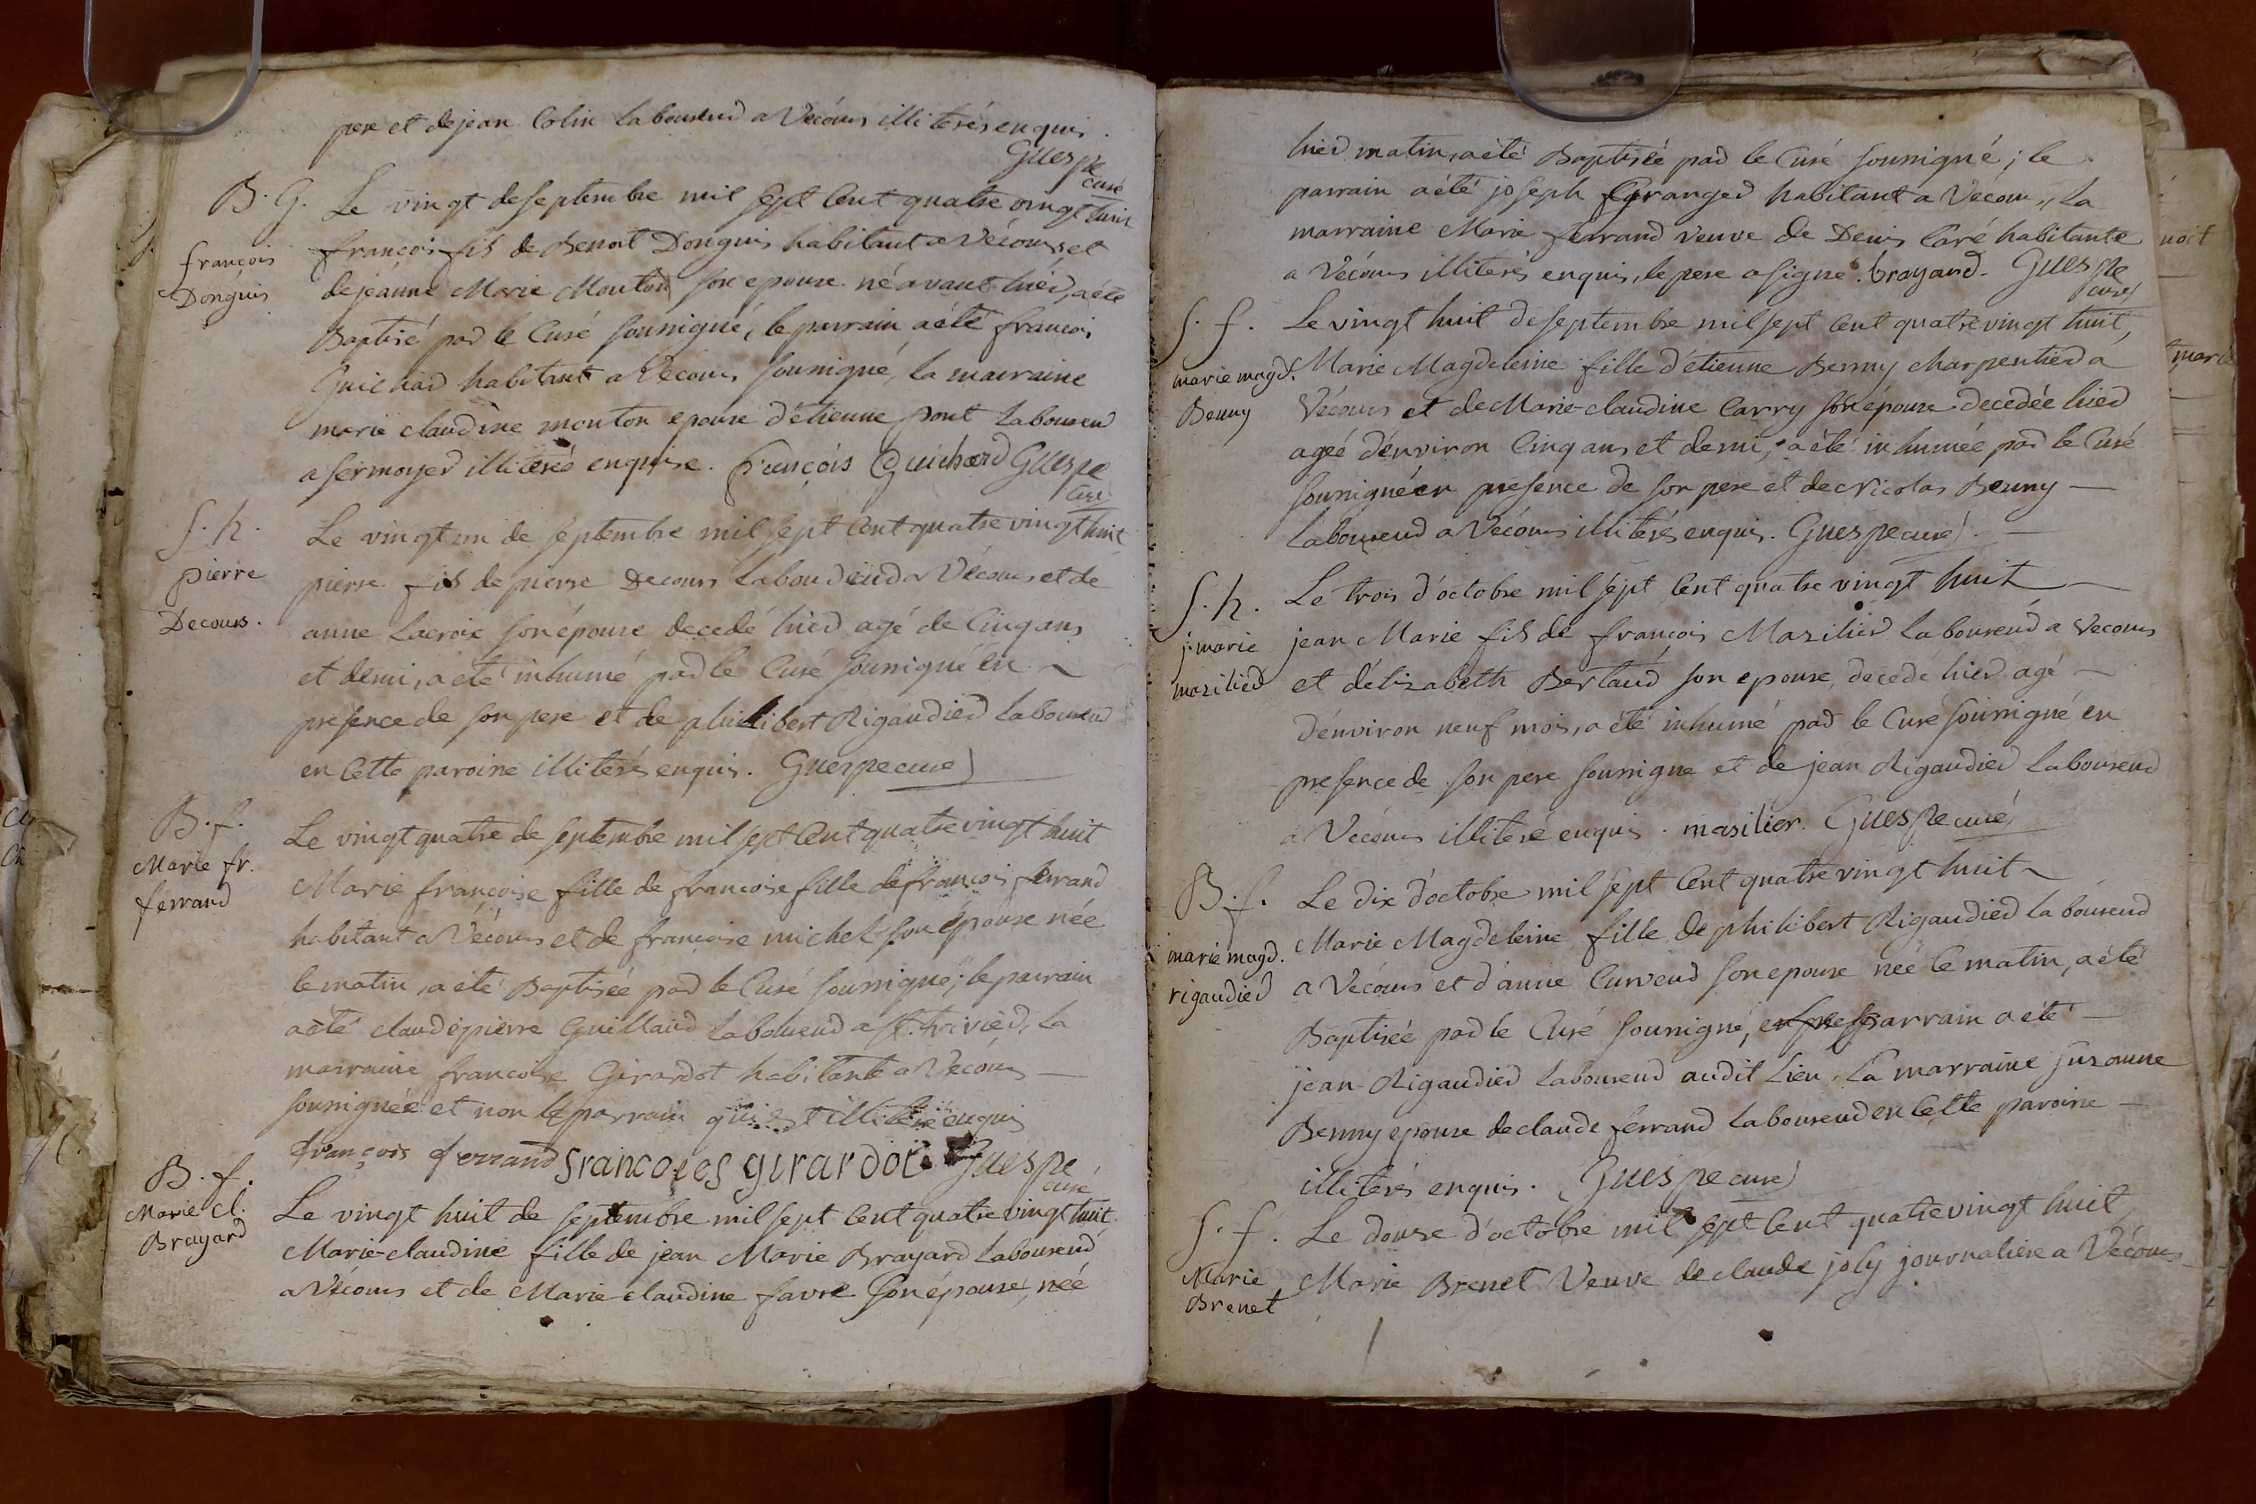 pere et de jean Colin laboureur a Vécours illiterés enquis.
Guespe
curé
B. G.
françois
Donguis
Le vingt de septembre mil sept cent quatre vingt huit
françois fils de Benoit Donguis habitant a Vécours et
de jeanne Marie Mouton son epouse né avant hier, a été
Baptisé par le Curé soussigné, le parrain a été françois
Guichard habitant a Vécours soussigné, la marraine
marie claudine mouton epouse d'étienne pont laboureur
a sermoyer illiterée enquise. François Guichard Guespe
curé
S. h.
pierre
Decours.
Le vingt un de septembre mil sept cent quatre vingt huit
pierre fils de pierre Decours laboureur a Vécours et de
anne Lacroix son épouse decedé hier agé de Cinq ans
et demi, a eté inhumé par le Curé soussigné en
presence de son pere et de philibert Rigaudier laboureur
en Cette paroisse illiterés enquis. Guespe curé
B. f.
Marie fr.
ferrand
Le vingt quatre de septembre mil sept Cent quatre vingt huit
Marie françoise fille de françoise fille de françois ferrand
habitant a Vécours et de françoise michel son épouse née
le matin, a eté Baptisée par le Curé soussigné; le parrain
a été claude pierre Guillaud laboureur a st. trivier, la
marraine françoise Girardot habitante a Vécours
soussignée et non le parrain qui est illiteré enquis
françois ferrand francoies girardot Guespe
curé
B. f.
Marie Cl.
Brayard
Le vingt huit de septembre mil sept Cent quatre vingt huit
Marie-claudine fille de jean Marie Brayard laboureur
a Vécours et de Marie-claudine favre son épouse, née
hier matin, a été Baptisée par le Curé soussigné; le
parrain a été joseph granger habitant a Vécours, la
marraine Marie ferrand veuve de Denis Caré habitante
a Vécours illiterés enquis, le pere a signé. brayard. Guespe
curé
S. f.
marie magd.
Benny
Le vingt huit de septembre mil sept Cent quatre vingt huit,
Marie Magdeleine fille d'étienne Benny charpentier a
Vécours et de Marie-claudine Carry son épouse decedée hier
agée d'environ Cinq ans et demi, a été inhumée par le Curé
soussigné en presence de son pere et de Nicolas Benny
laboureur a Vécours illiterés enquis. Guespe curé.
S. h.
j. marie
masilier
Le trois d'octobre mil sept Cent quatre vingt huit
jean Marie fils de françois Masilier laboureur a Vecours
et d'élizabeth Bertaud son epouse, decede hier agé
d'environ neuf mois, a été inhumé par le Curé soussigné en
presence de son pere soussigné et de jean Rigaudier laboureur
a Vécours illiteré enquis. masilier. Guespe curé
B. f.
marie magd.
rigaudier
Le dix d'octobre mil sept Cent quatre vingt huit
Marie Magdeleine fille de philibert Rigaudier laboureur
a Vécours et d'anne Curveur son epouse née le matin, a été
Baptisée par le Curé soussigné, parrain a été
jean Rigaudier laboureur audit Lieu, La marraine suzanne
Benny epouse de claude ferrand laboureur en Cette paroisse
illiterés enquis. Guespe curé
S. f.
Marie
Brenet
Le douze d'octobre mil sept Cent quatre vingt huit
Marie Brenet Veuve de claude joly journaliere a Vécours